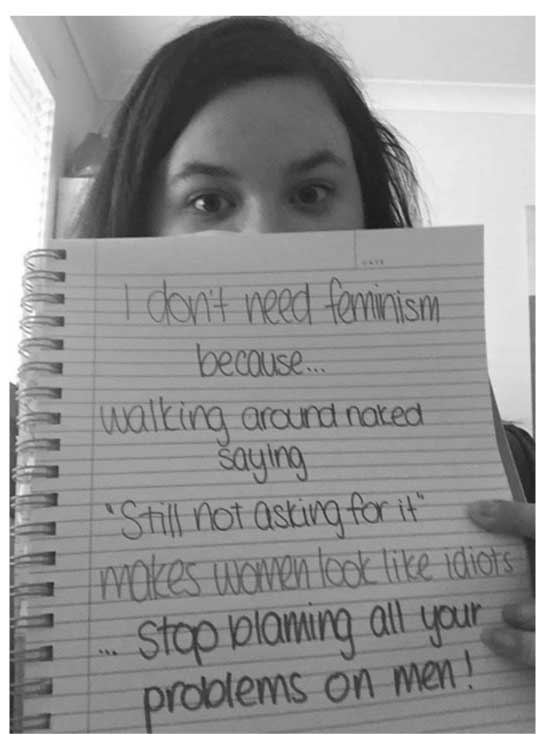 DATE
I don't need feminism
because...
walking around naked
saying
"Still not asking for it"
makes women look like idiots
... stop blaming all your
problems on men!